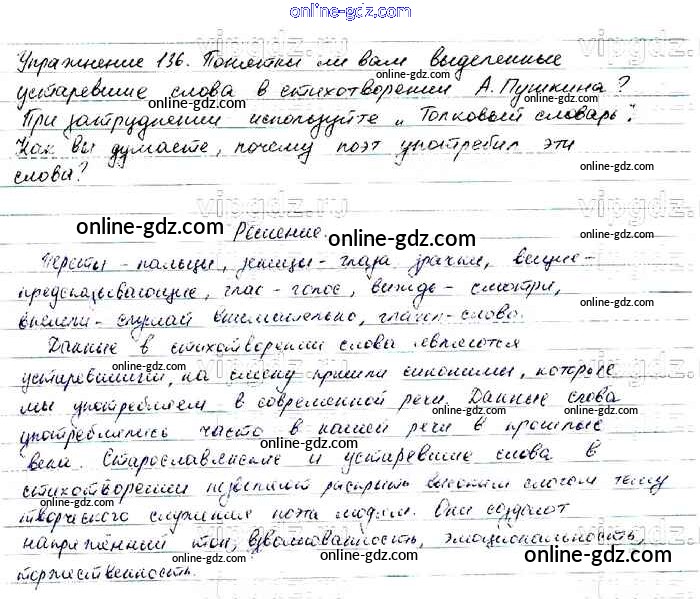 online-gdz.com
Упражнение 136. Понятны ли вам выделенные
устаревшие слова в стихотворении А. Пушкина?
При затруднении используйте „Толковый словарь".
Как вы думаете, почему поэт употребил эти
слова?
Решение.
Персты - пальцы, зеницы - глаза, зрачки, вещие -
предсказывающие, глас - голос, виждь - смотри,
внемли - слушай внимательно, глагол - слово.
Данные в стихотворении слова являются
устаревшими, на смену пришли синонимы, которые
мы употребляем в современной речи. Данные слова
употреблялись часто в нашей речи в прошлые
века. Старославянские и устаревшие слова в
стихотворении позволяют раскрыть высоким слогом тему
творческого служения поэта людям. Они создают
напряжённый тон, взволнованность, эмоциональность,
торжественность.
vipgdz.ru
online-gdz.com